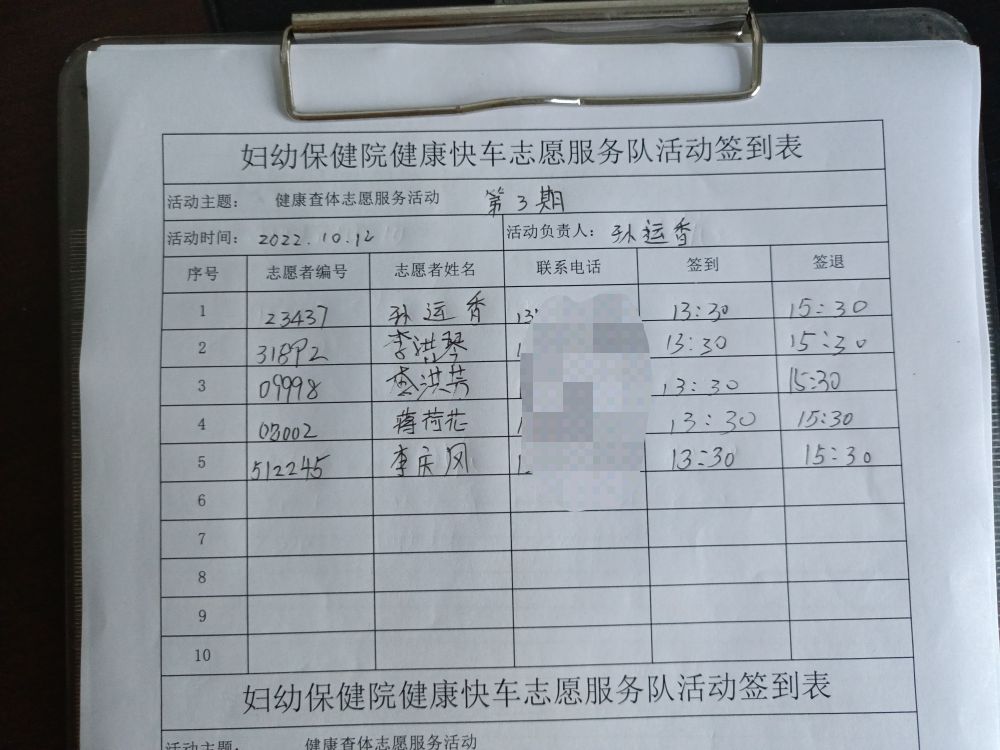 妇幼保健院健康快车志愿服务队活动签到表
活动主题： 健康查体志愿服务活动 第3期
活动时间： 2022.10.12 活动负责人： 孙运香
序号 志愿者编号 志愿者姓名 联系电话 签到 签退
1 23437 孙运香 13 13:30 15:30
2 李洪琴 1 13:30 15:30
3 09998 李洪芳 1 13:30 15:30
4 03002 蒋荷花 1 13:30 15:30
5 512245 李庆风 1 13:30 15:30
6
7
8
9
10
妇幼保健院健康快车志愿服务队活动签到表
活动主题： 健康查体志愿服务活动